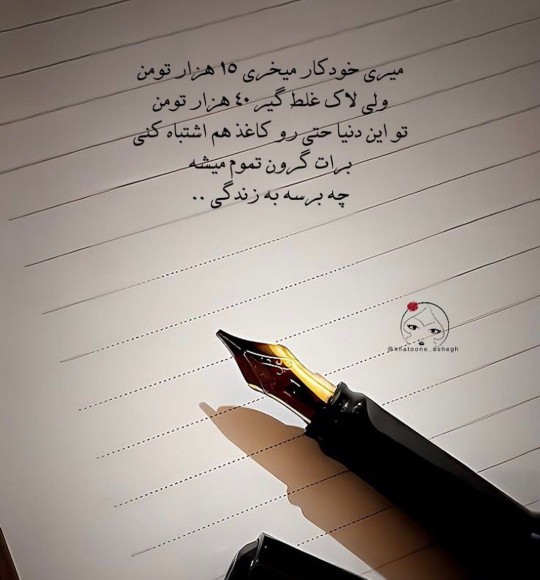 میری خودکار میخری ۱۵ هزار تومن
ولی لاک غلط گیر ۴۰ هزار تومن
تو این دنیا حتی رو کاغذ هم اشتباه کنی
برات گرون تموم میشه
چه برسه به زندگی ..
@khatoone_eshegh